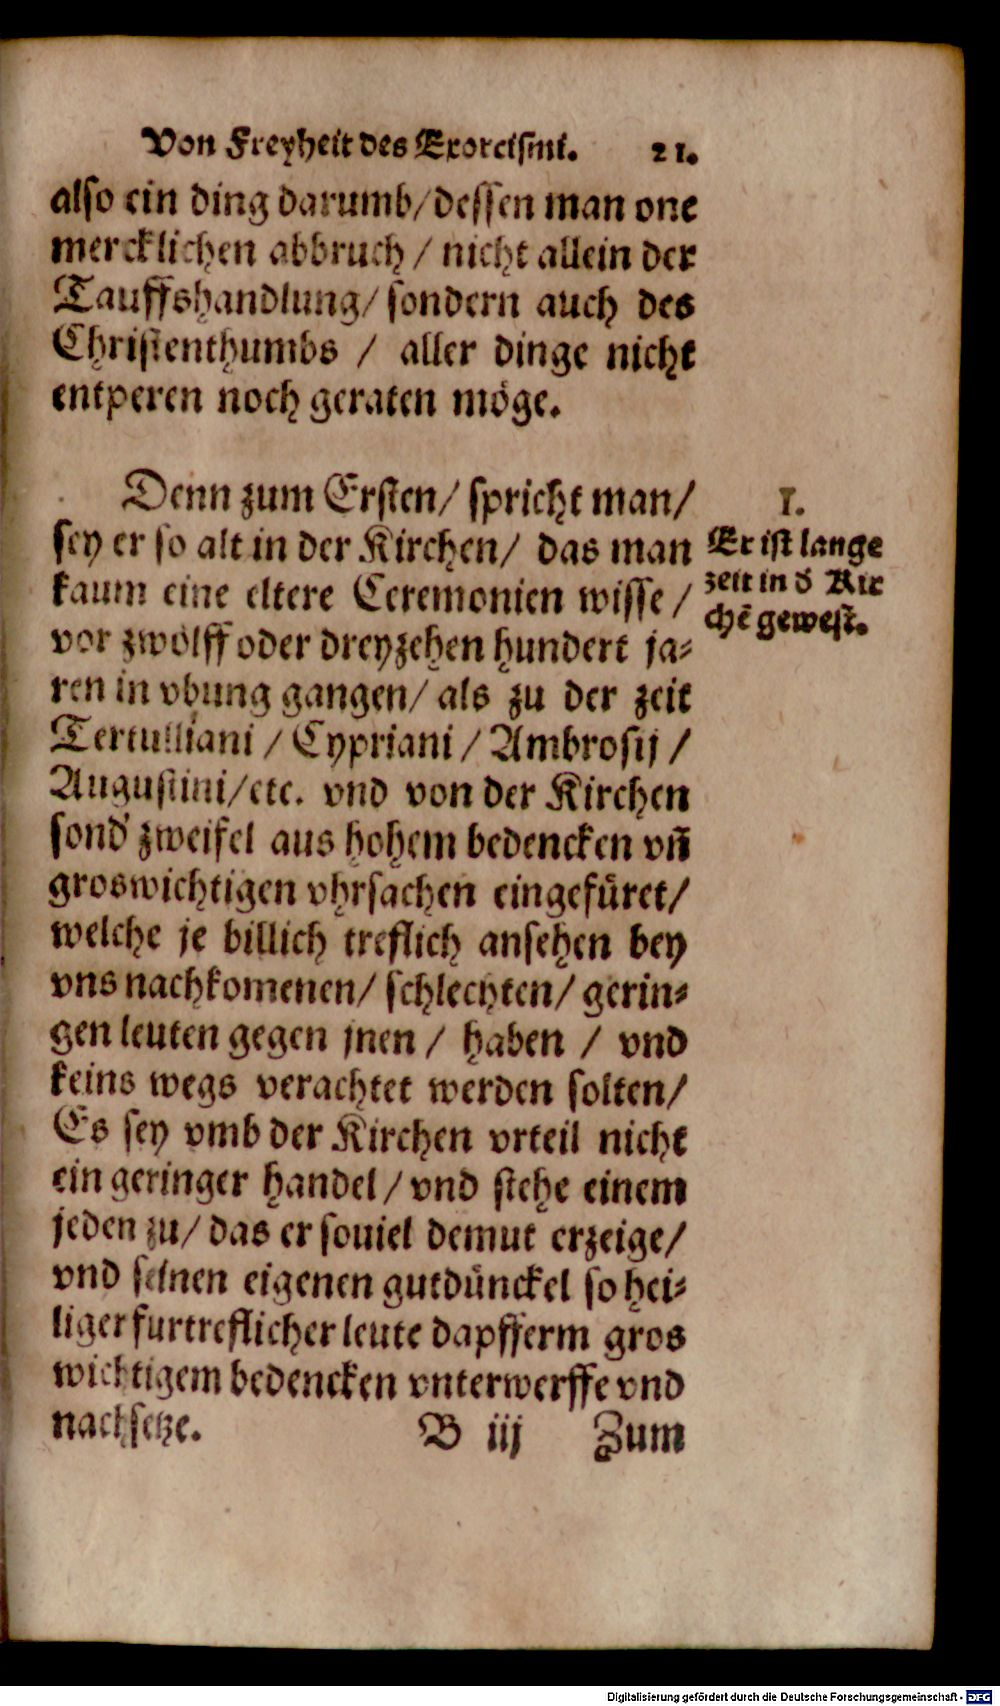 Von Freyheit des Exorcismi. 21.
also ein ding darumb/dessen man one
mercklichen abbruch / nicht allein der
Tauffshandlung/ sondern auch des
Christenthumbs / aller dinge nicht
entperen noch geraten möge.
Denn zum Ersten/ spricht man/
sey er so alt in der Kirchen/ das man
kaum eine eltere Ceremonien wisse /
vor zwölff oder dreyzehen hundert ja-
ren in vbung gangen/ als zu der zeit
Tertulliani / Cypriani / Ambrosij /
Augustini/etc. vnd von der Kirchen
sond' zweifel aus hohem bedencken vn̄
groswichtigen vhrsachen eingefüret/
welche je billich treflich ansehen bey
vns nachkomenen/ schlechten/ gerin-
gen leuten gegen jnen / haben / vnd
keins wegs verachtet werden solten/
Es sey vmb der Kirchen vrteil nicht
ein geringer handel/ vnd stehe einem
jeden zu/ das er souiel demut erzeige/
vnd seinen eigenen gutdünckel so hei-
liger furtreflicher leute dapfferm gros
wichtigem bedencken vnterwerffe vnd
nachsetze.
B iij Zum
I.
Er ist lange
zeit in d' Kir
chē gewest.
Digitalisierung gefördert durch die Deutsche Forschungsgemeinschaft - DFG